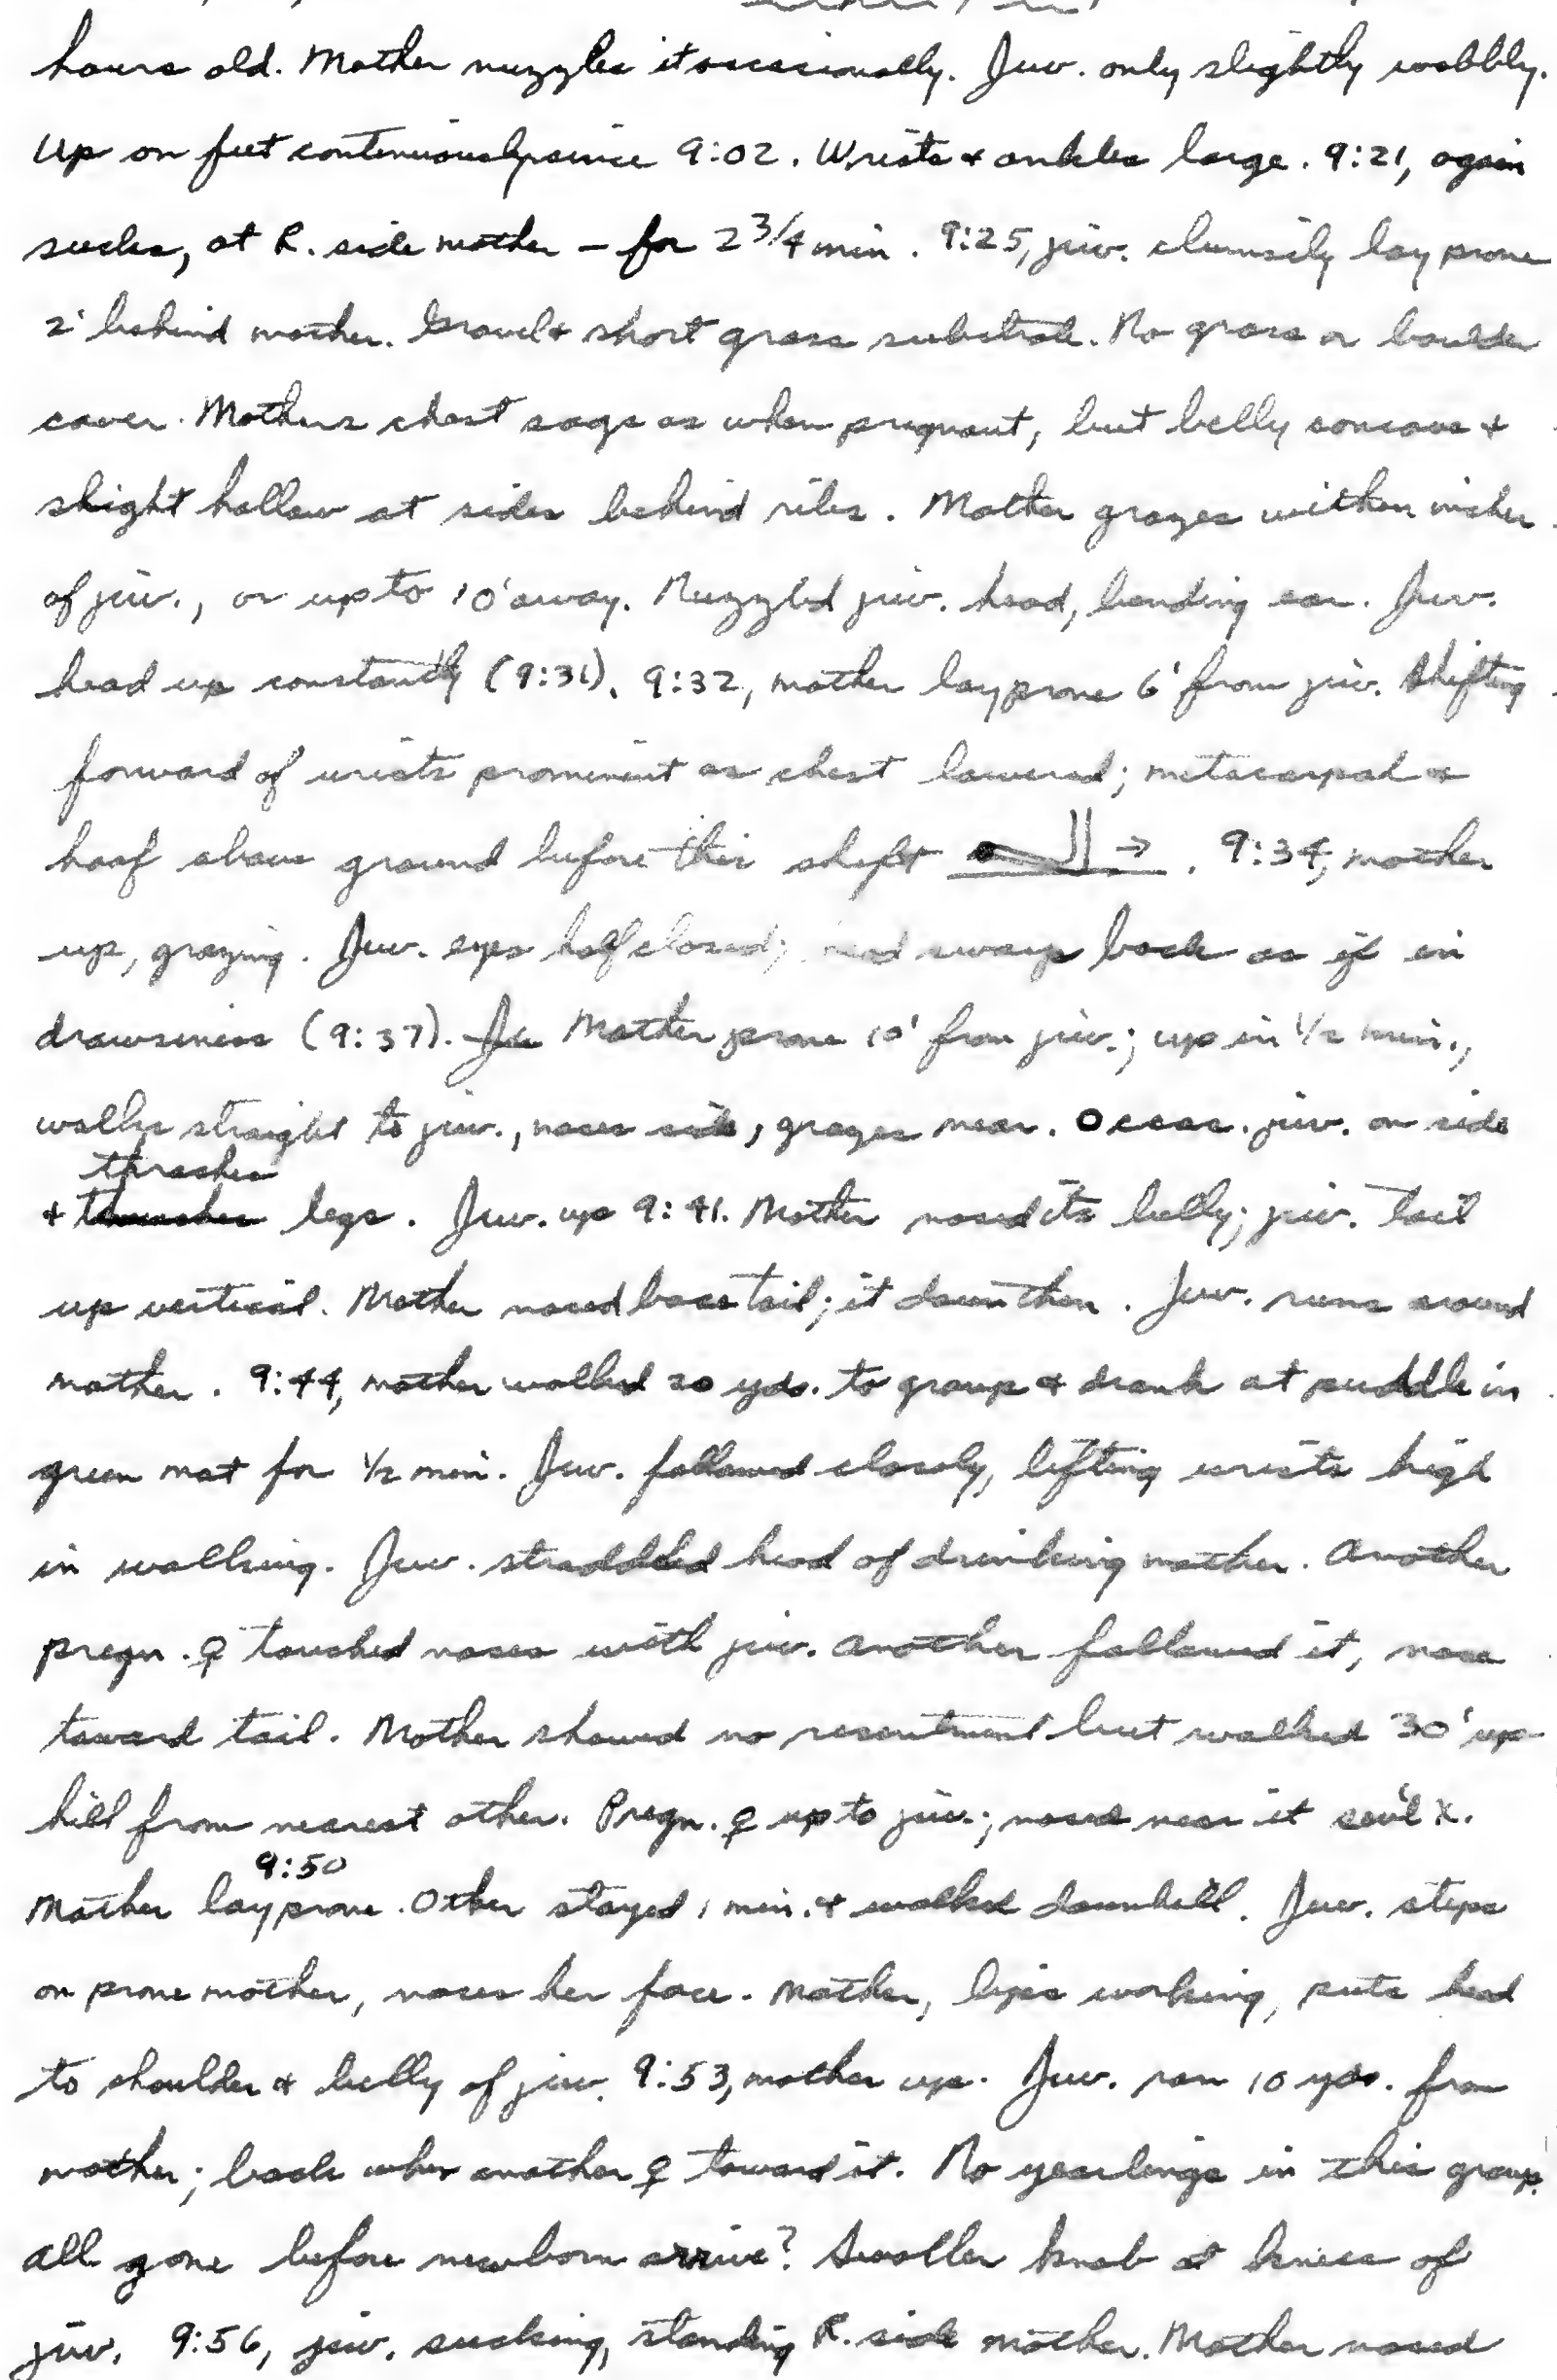 hours old. Mother nuzzles it occasionally. Juv. only slightly wobbly.
Up on feet continuously since 9:02. Wrists & ankles large. 9:21, again
sucks, at R. side mother – for 2 3/4 min. 9:25, juv. clumsily lay prone
2' behind mother. Gravel & short grass substrate. No grass or boulder
cover. Mothers chest sags as when pregnant, but belly concave &
slight hollow at sides behind ribs. Mother grazes within inches
of juv., or up to 10' away. Nuzzled juv. head, bending ear. Juv.
head up constantly (9:31). 9:32, mother lay prone 6' from juv. Shifting
forward of wrists prominent as chest lowered; metacarpal &
hoof above ground before this shift → . 9:34, mother
up, grazing. Juv. eyes half closed; head sways back as if in
drowsiness (9:37). Mother prone 10' from juv.; up in 1/2 min.,
walks straight to juv., noses side, grazes near. Occas. juv. on side
thrashes
& legs. Juv. up 9:41. Mother nosed its belly; juv. tail
up vertical. Mother nosed base tail; it down then. Juv. runs around
mother. 9:44, mother walked 20 yds. to group & drank at puddle in
green mat for 1/2 min. Juv. followed closely, lifting wrists high
in walking. Juv. straddled head of drinking mother. Another
pregn. ♀ touched noses with juv. Another followed it, nose
toward tail. Mother showed no resentment but walked 30' up
hill from nearest other. Pregn. ♀ up to juv.; nosed near it sev'l x.
9:50
Mother lay prone. Other stayed 1 min. & walked downhill. Juv. steps
on prone mother, noses her face. Mother, lips working, puts head
to shoulder & belly of juv. 9:53, mother up. Juv. ran 10 yds. from
mother; back when another ♀ toward it. No yearlings in this group.
All gone before newborn arrive? Swollen knob at knees of
juv. 9:56, juv. sucking, standing R. side mother. Mother nosed